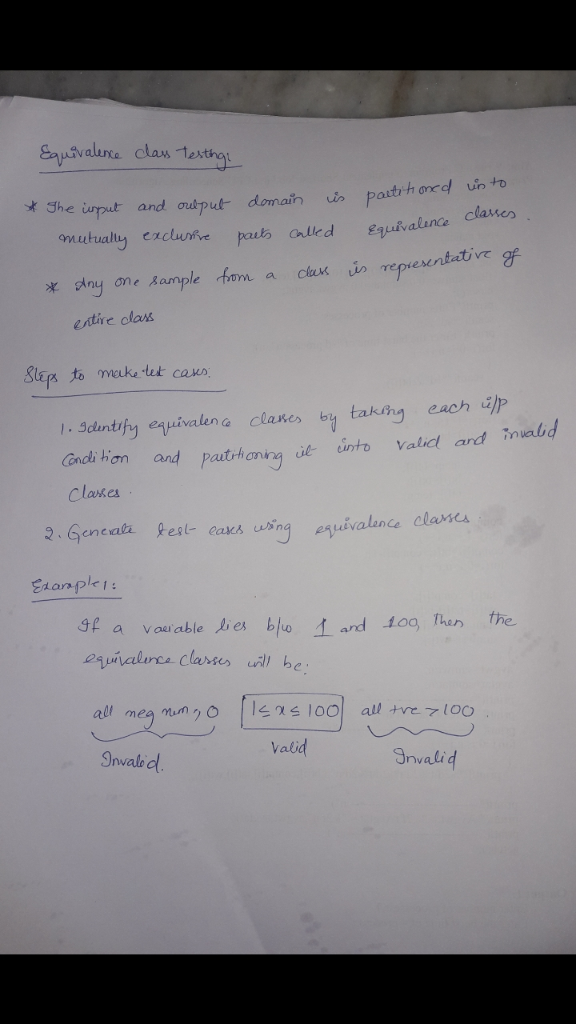 Equivalence class testing:
* The input and output domain is partitioned into
mutually exclusive parts called equivalence classes.
* Any one sample from a class is representative of
entire class
Steps to make test cases:
1. Identify equivalence classes by taking each i/p
condition and partitioning it into valid and invalid
classes.
2. Generate test cases using equivalence classes
Example 1:
If a variable lies b/w 1 and 100, Then the
equivalence classes will be:
all neg num, 0 1≤x≤100 all +ve >100.
Invalid. Valid Invalid